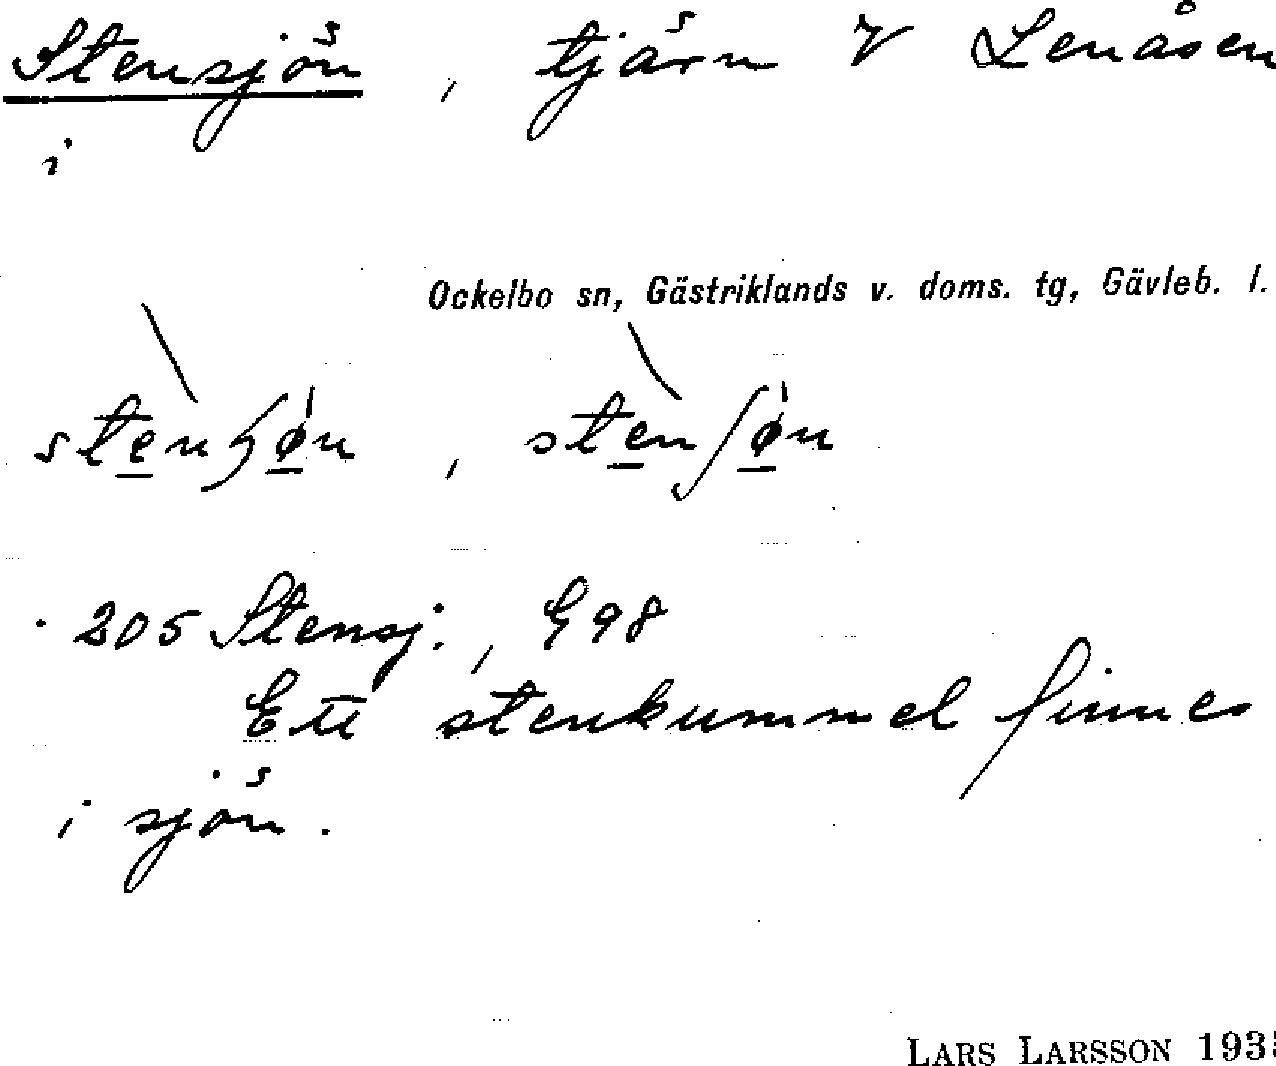 Stensjön, tjärn V Lenåsen
i
Ockelbo sn, Gästriklands v. doms. tg, Gävleb. l.
205 Stensj., G 98
Ett stenkummel finnes
i sjön.
LARS LARSSON 193